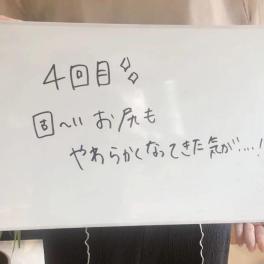 4回目
固〜いお尻も
やわらかくなってきた気が...!